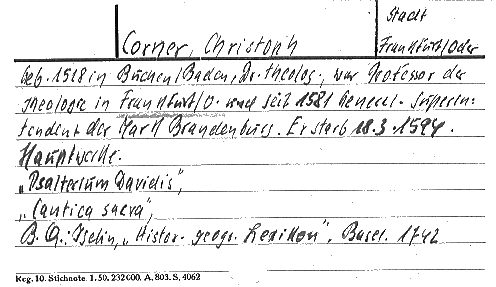 Stadt
Corner, Christoph
Frankfurt/Oder
geb. 1518 in Buchen/Baden, Dr. theolog., war Professor der
Theologie in Frankfurt/O. und seit 1581 General-Superin-
tendent der Mark Brandenburg. Er starb 18.3.1594.
Hauptwerke.
"Psalterium Davidis",
"Cantica sacra",
B. Q.: Iselin, "Histor.-geogr. Lexikon". Basel. 1742
Reg. 10. Stichnote. 1. 50. 232000. A. 803. S. 4062